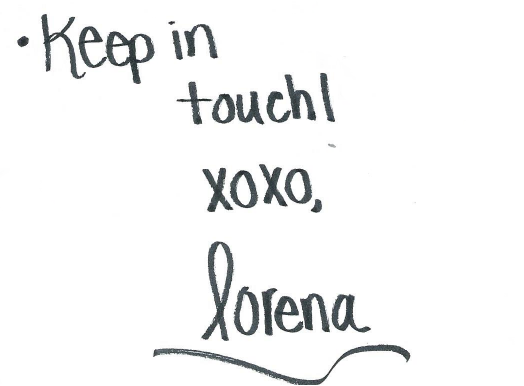 • Keep in
touch!
xoxo,
lorena